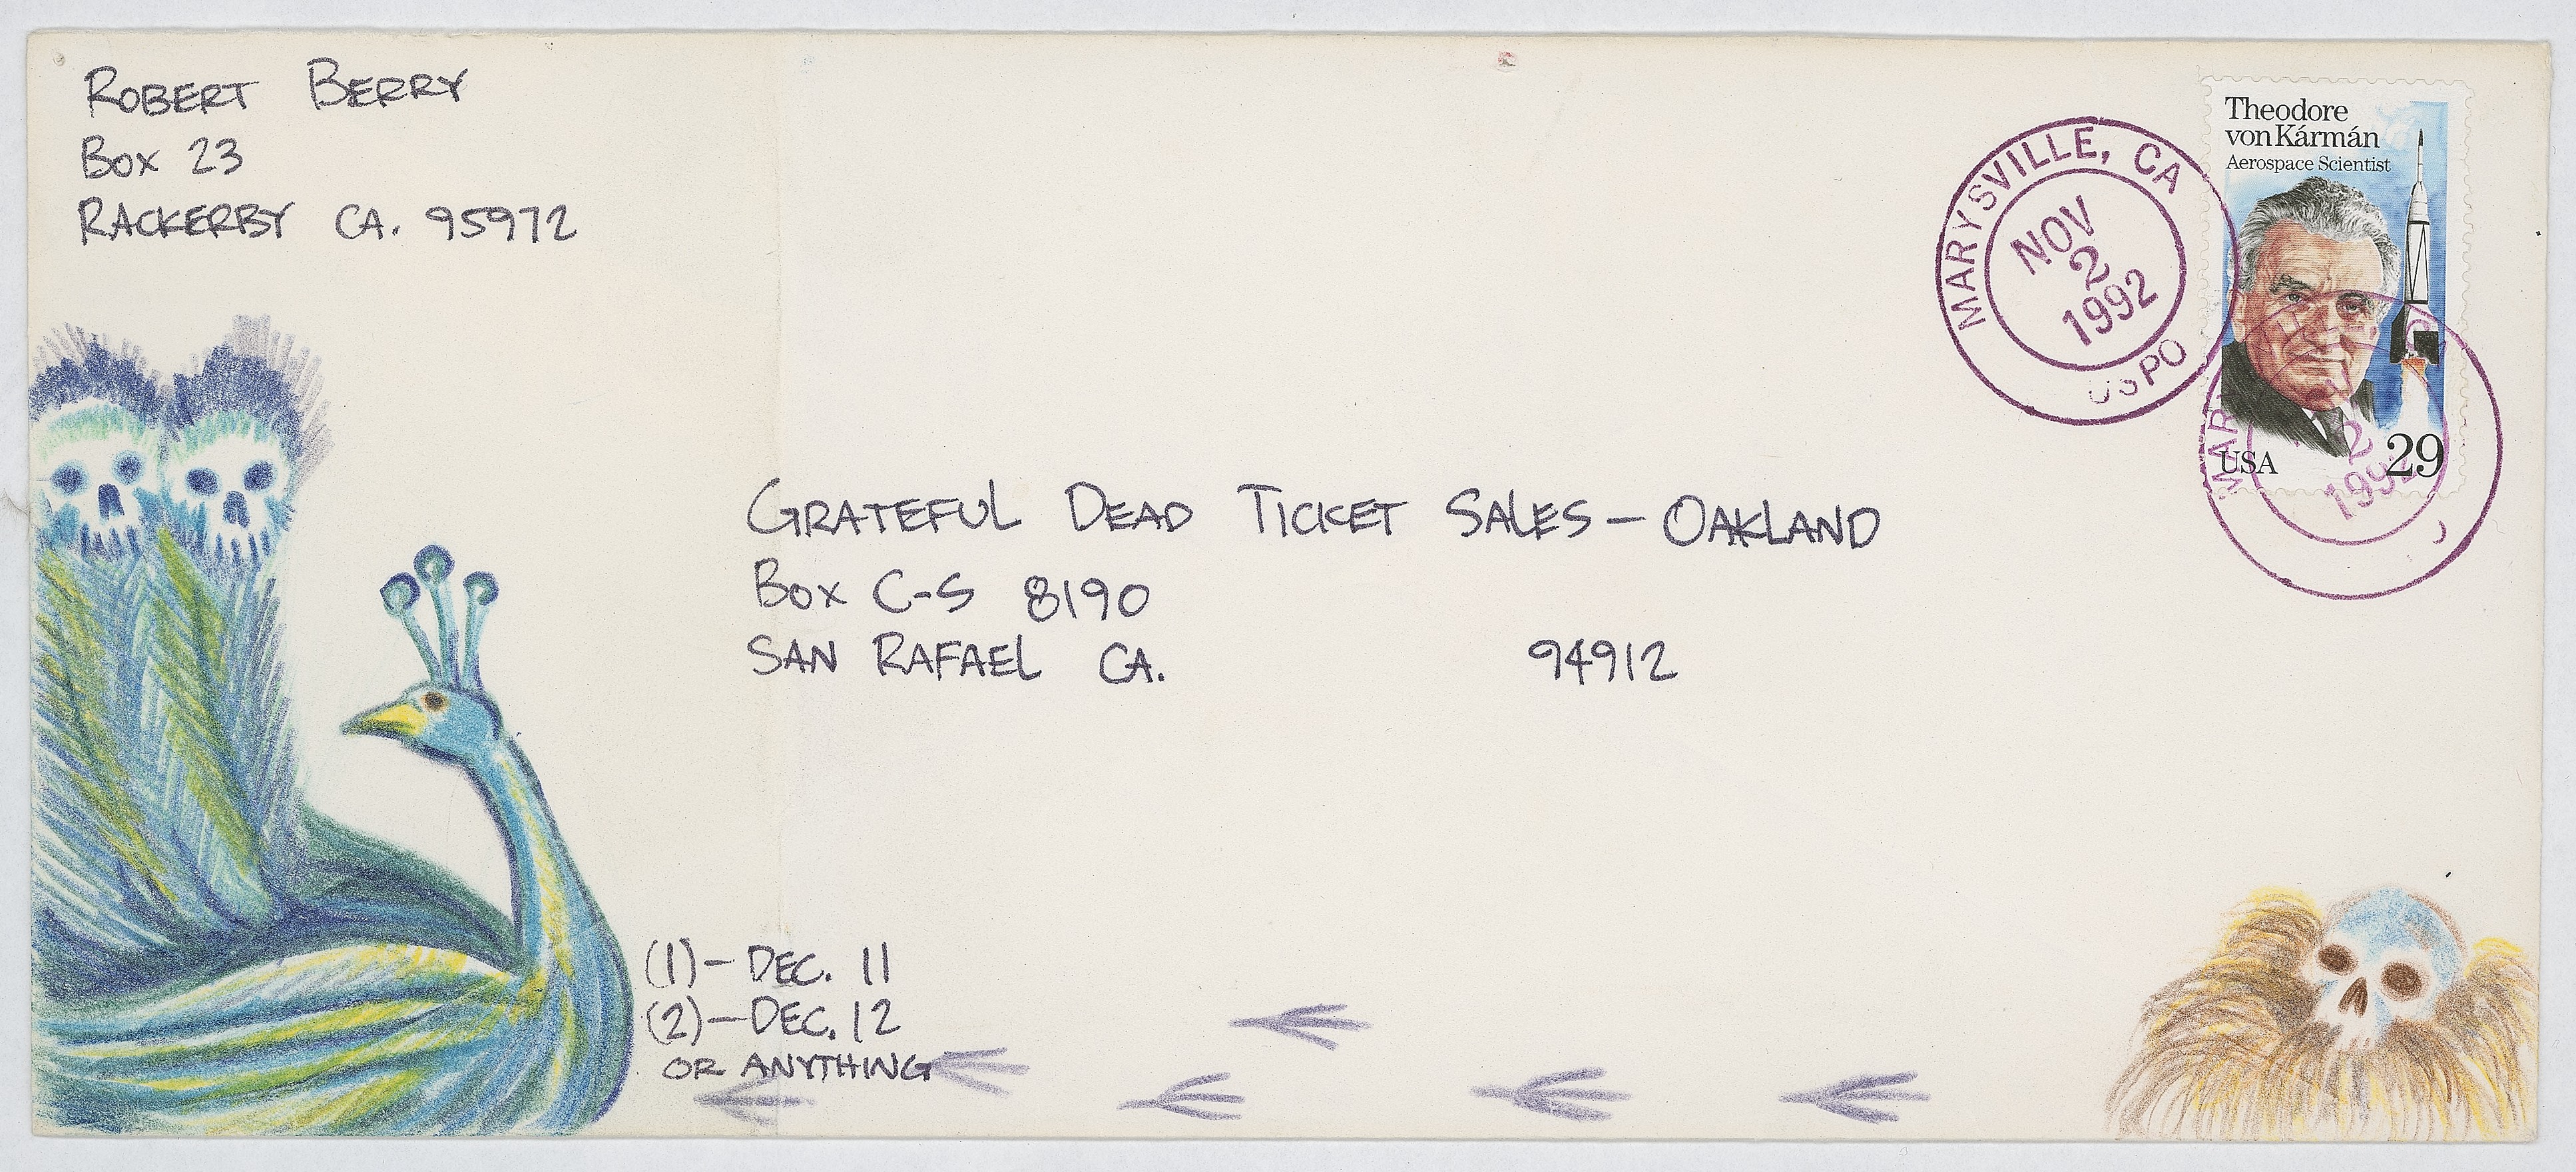 ROBERT BERRY
BOX 23
RACKERBY CA. 95972
MARYSVILLE, CA
NOV
2
1992
USPO
Theodore
von Kármán
Aerospace Scientist
USA 29
MAR
2
1992
GRATEFUL DEAD TICKET SALES – OAKLAND
BOX C-S 8190
SAN RAFAEL CA. 94912
(1) – DEC. 11
(2) – DEC. 12
OR ANYTHING